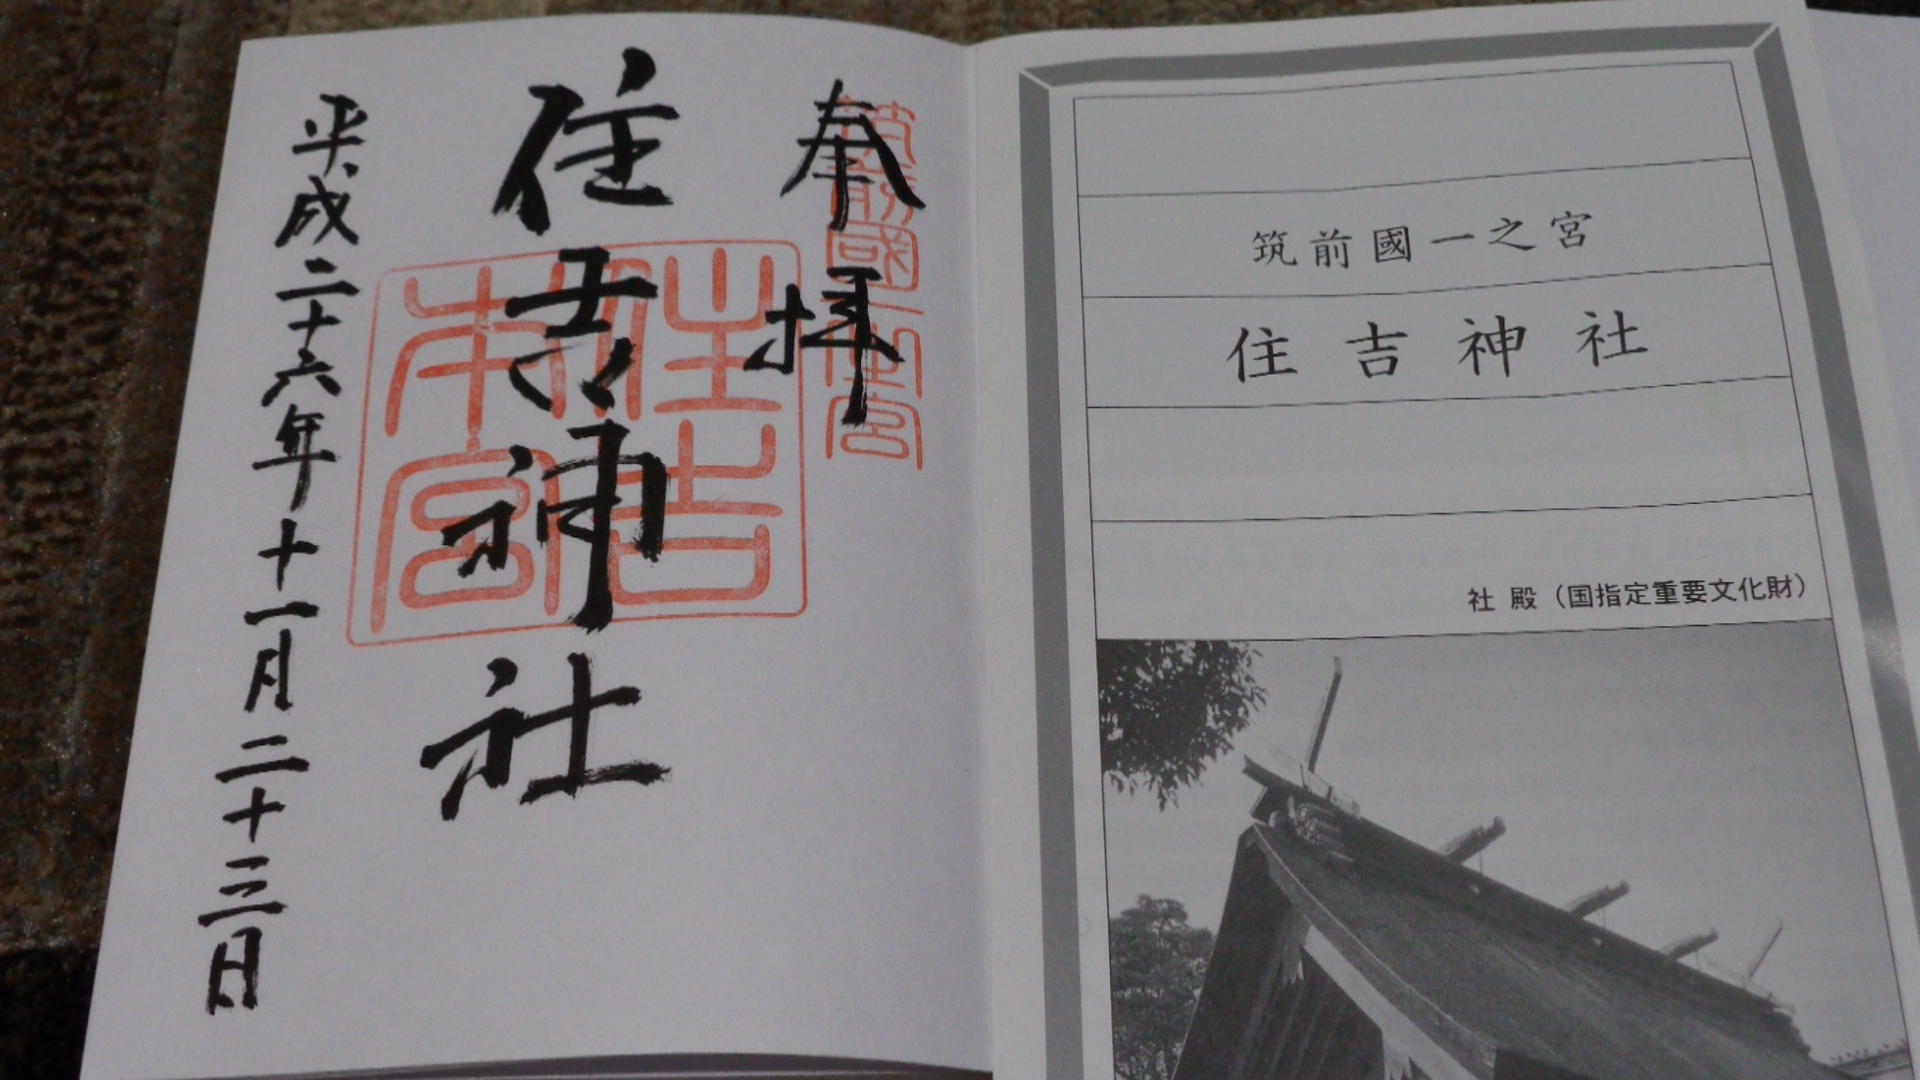 奉拝
筑前國一之宮
住吉神社
住吉本宮
平成二十六年十一月二十三日
筑前國一之宮
住吉神社
社殿（国指定重要文化財）